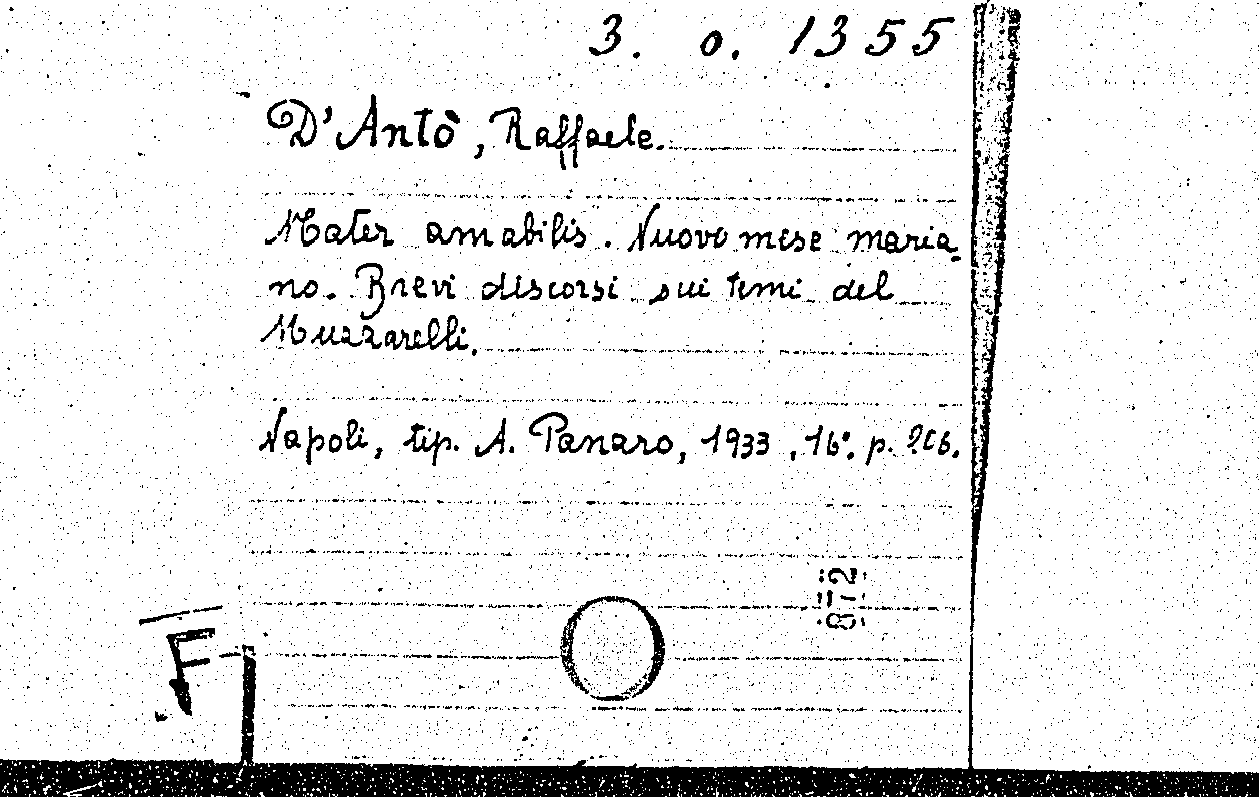 3. o. 1355
D'Antò, Raffaele.
Mater amabilis. Nuovo mese maria-
no. Brevi discorsi sui temi del
Muzzarelli.
Napoli, tip. A. Panaro, 1933, 16°. p.
872
F